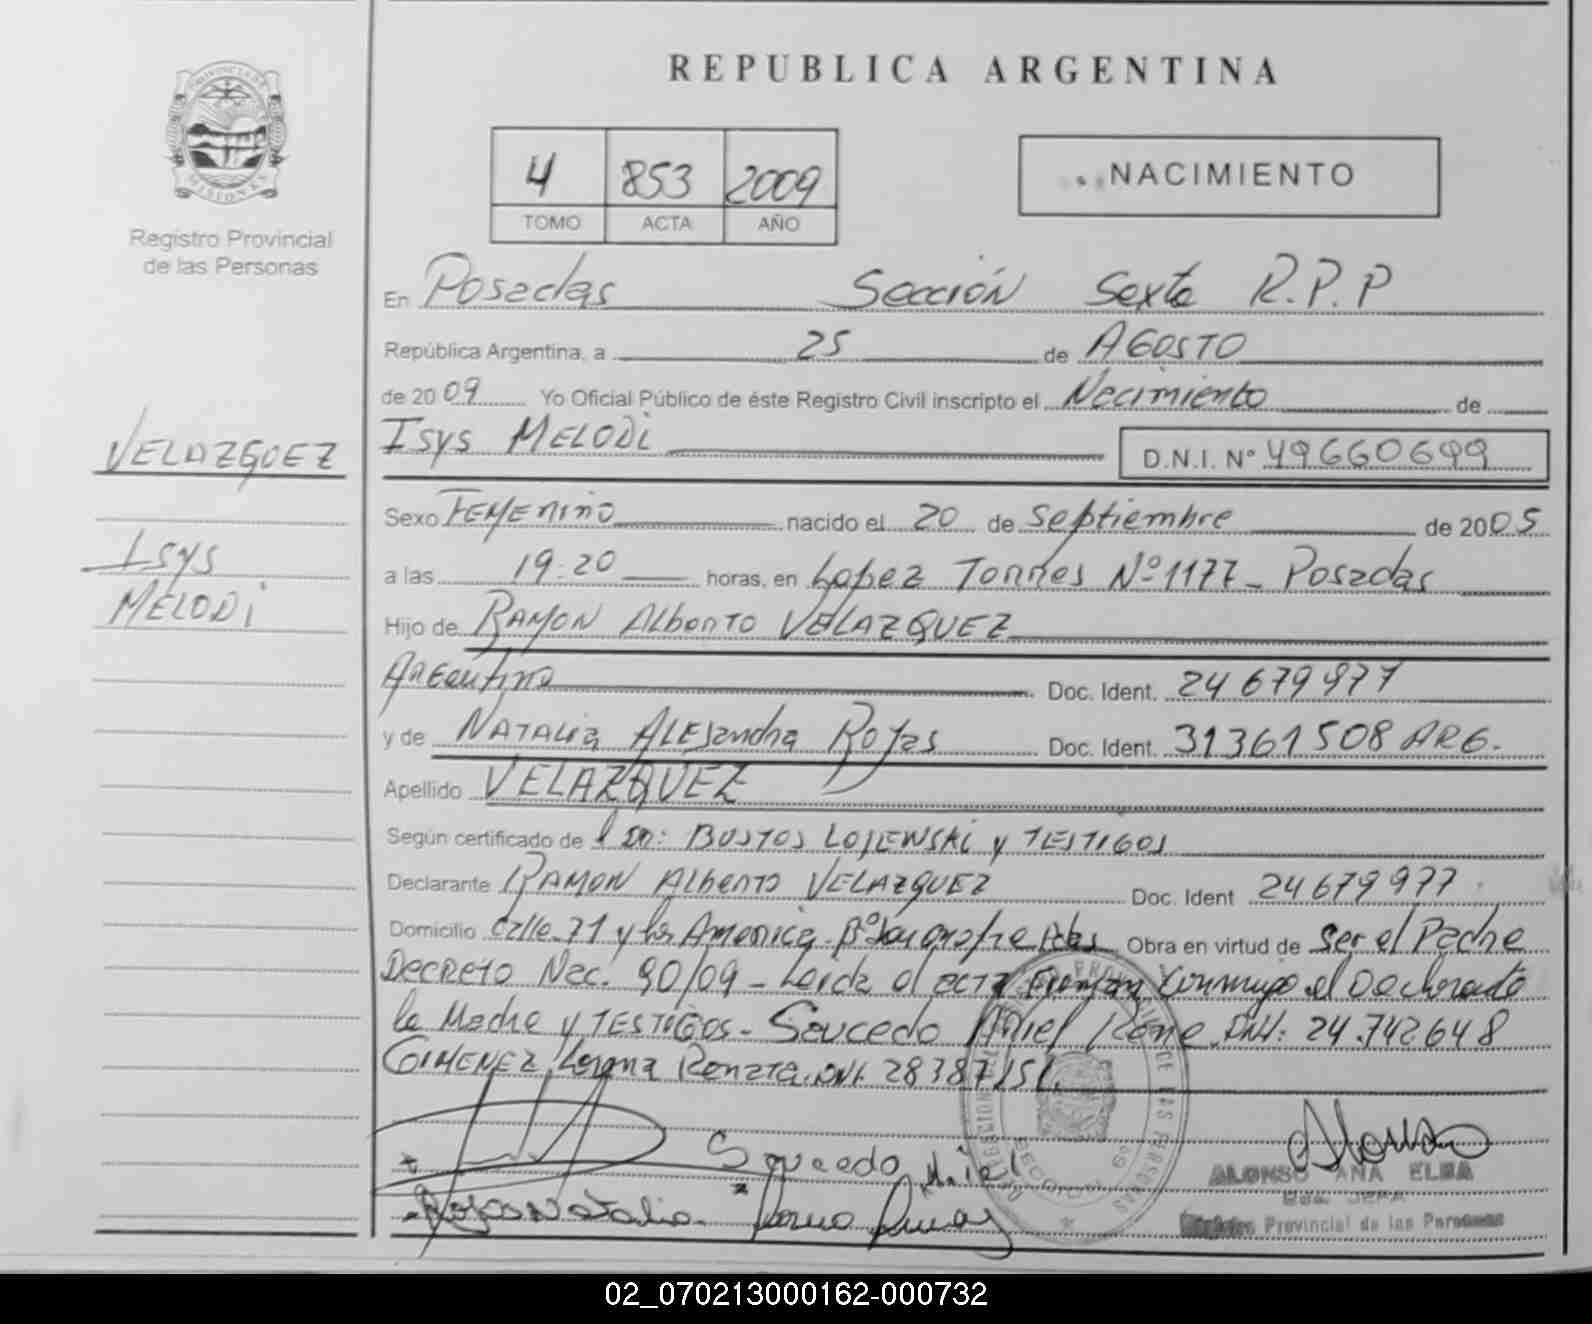 REPUBLICA ARGENTINA
PROVINCIA DE MISIONES
Registro Provincial
de las Personas
4 853 2009
TOMO ACTA AÑO
NACIMIENTO
En Posadas Sección Sexta R.P.P
República Argentina, a 25 de AGOSTO
de 2009 Yo Oficial Público de éste Registro Civil inscripto el Nacimiento de
VELAZQUEZ
Isys MELODi
D.N.I. N° 49660699
Sexo FEMEnino nacido el 20 de Septiembre de 2005
Isys
MELODi
a las 19:20 horas, en Lopez Torres Nº 1177 - Posadas
Hijo de RAMON Alberto VELAZQUEZ
Argentino Doc. Ident. 24 679 977
y de NATALia ALEJandra Rojas Doc. Ident. 31361508 ARG.
Apellido VELAZQUEZ
Según certificado de Dr: BUSTOS LOJEWSKi y TESTIGOS
Declarante RAMON Alberto VELAZQUEZ Doc. Ident 24679977
Domicilio Calle 71 y las America Obra en virtud de Ser el Padre
Decreto Nac. 90/09 - Leida el acta Firman Conmigo el Declarante
la Madre y TESTIGOS - Saucedo Ariel Rene DNI: 24.742.648
GIMENEZ Lorena DNI 28387151
Saucedo Ariel
Rojas Natalia
ALONSO ANA ELBA
Registro Provincial de las Personas
02_070213000162-000732